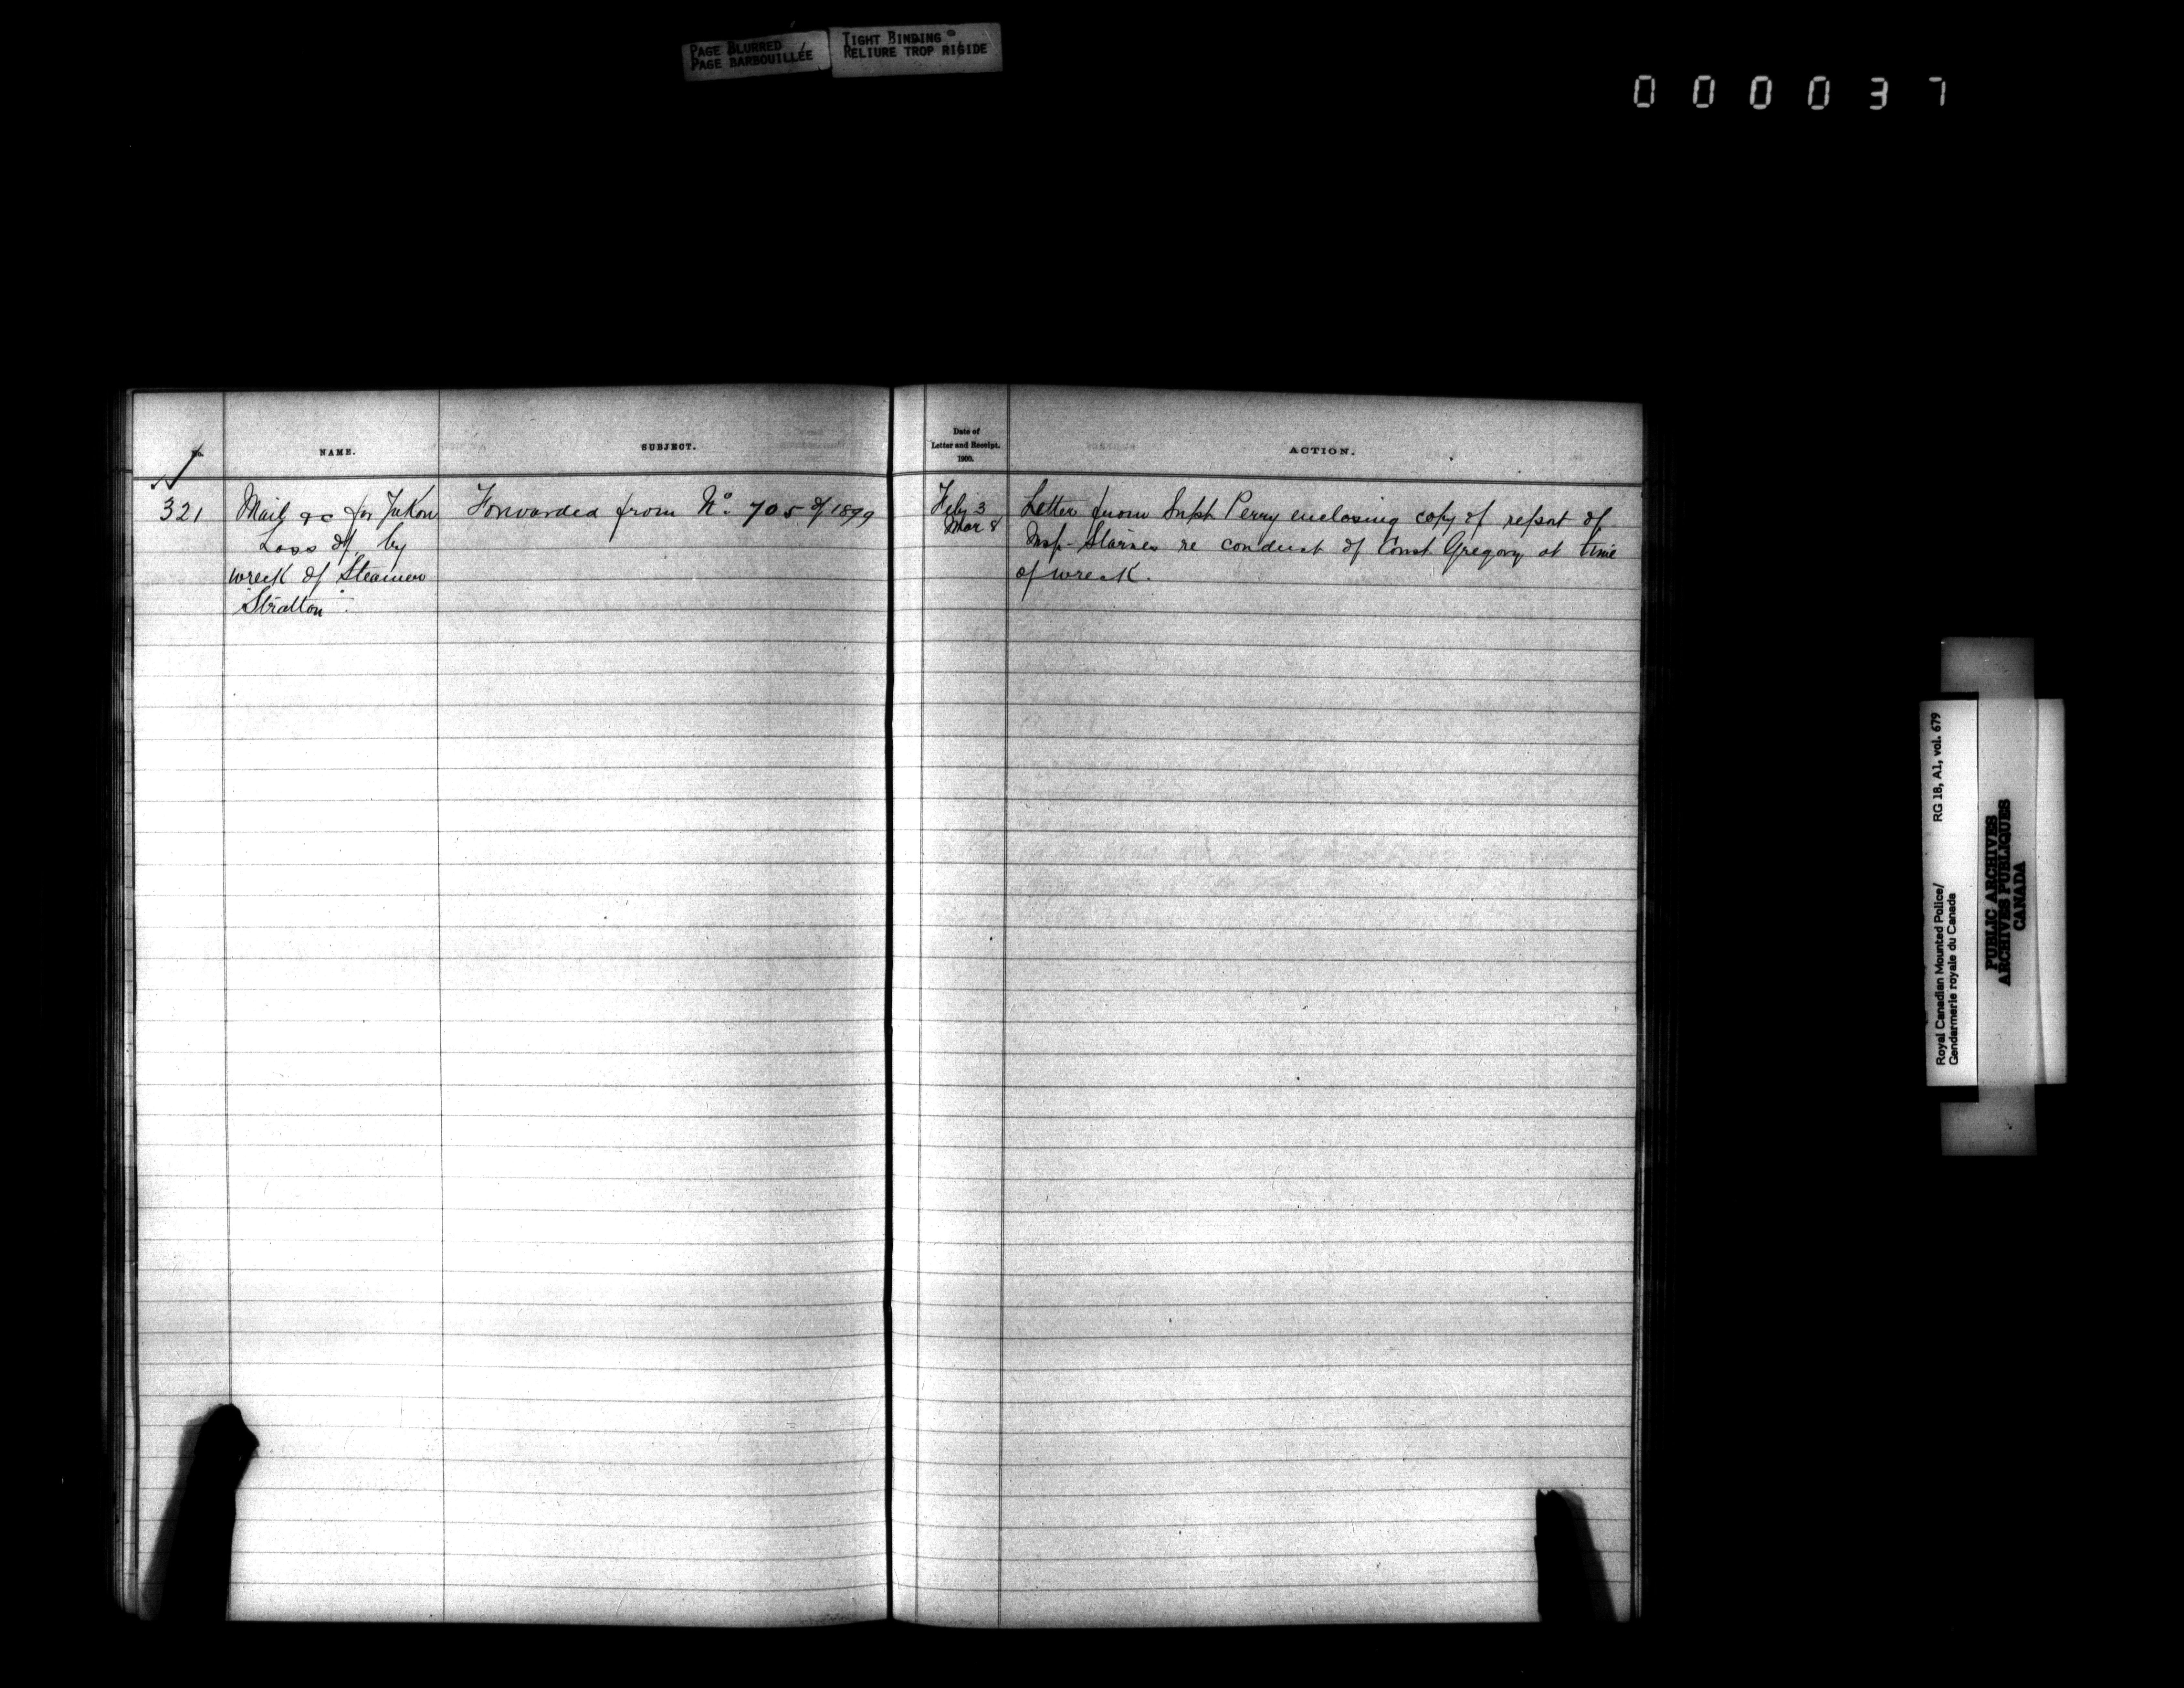 PAGE BLURRED
PAGE BARBOUILLÉE
TIGHT BINDING
RELIURE TROP RIGIDE
000037
No.
NAME.
SUBJECT.
Date of
Letter and Receipt.
1900.
ACTION.
321
Mail &c for Yukon
Loss of, by
wreck of Steamer
"Stratton".
Forwarded from No. 705 of 1899
Feby 3
Mar 8
Letter from Supt. Perry enclosing copy of report of
Insp. Starnes re conduct of Const. Gregory at time
of wreck.
Royal Canadian Mounted Police/ RG 18, A1, vol. 679
Gendarmerie royale du Canada
PUBLIC ARCHIVES
ARCHIVES PUBLIQUES
CANADA